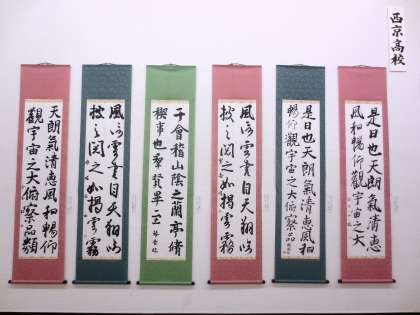 西京高校
是日也天朗氣清惠
風和暢仰觀宇宙之大
是日也天朗氣清惠風和
暢仰觀宇宙之大
風信雲書自天翔臨
披之閲之如揭雲霧
于會稽山陰之蘭亭脩
禊事也羣賢畢至
風信雲書自天翔臨
披之閲之如揭雲霧
天朗氣清惠風和暢仰
觀宇宙之大俯察品類